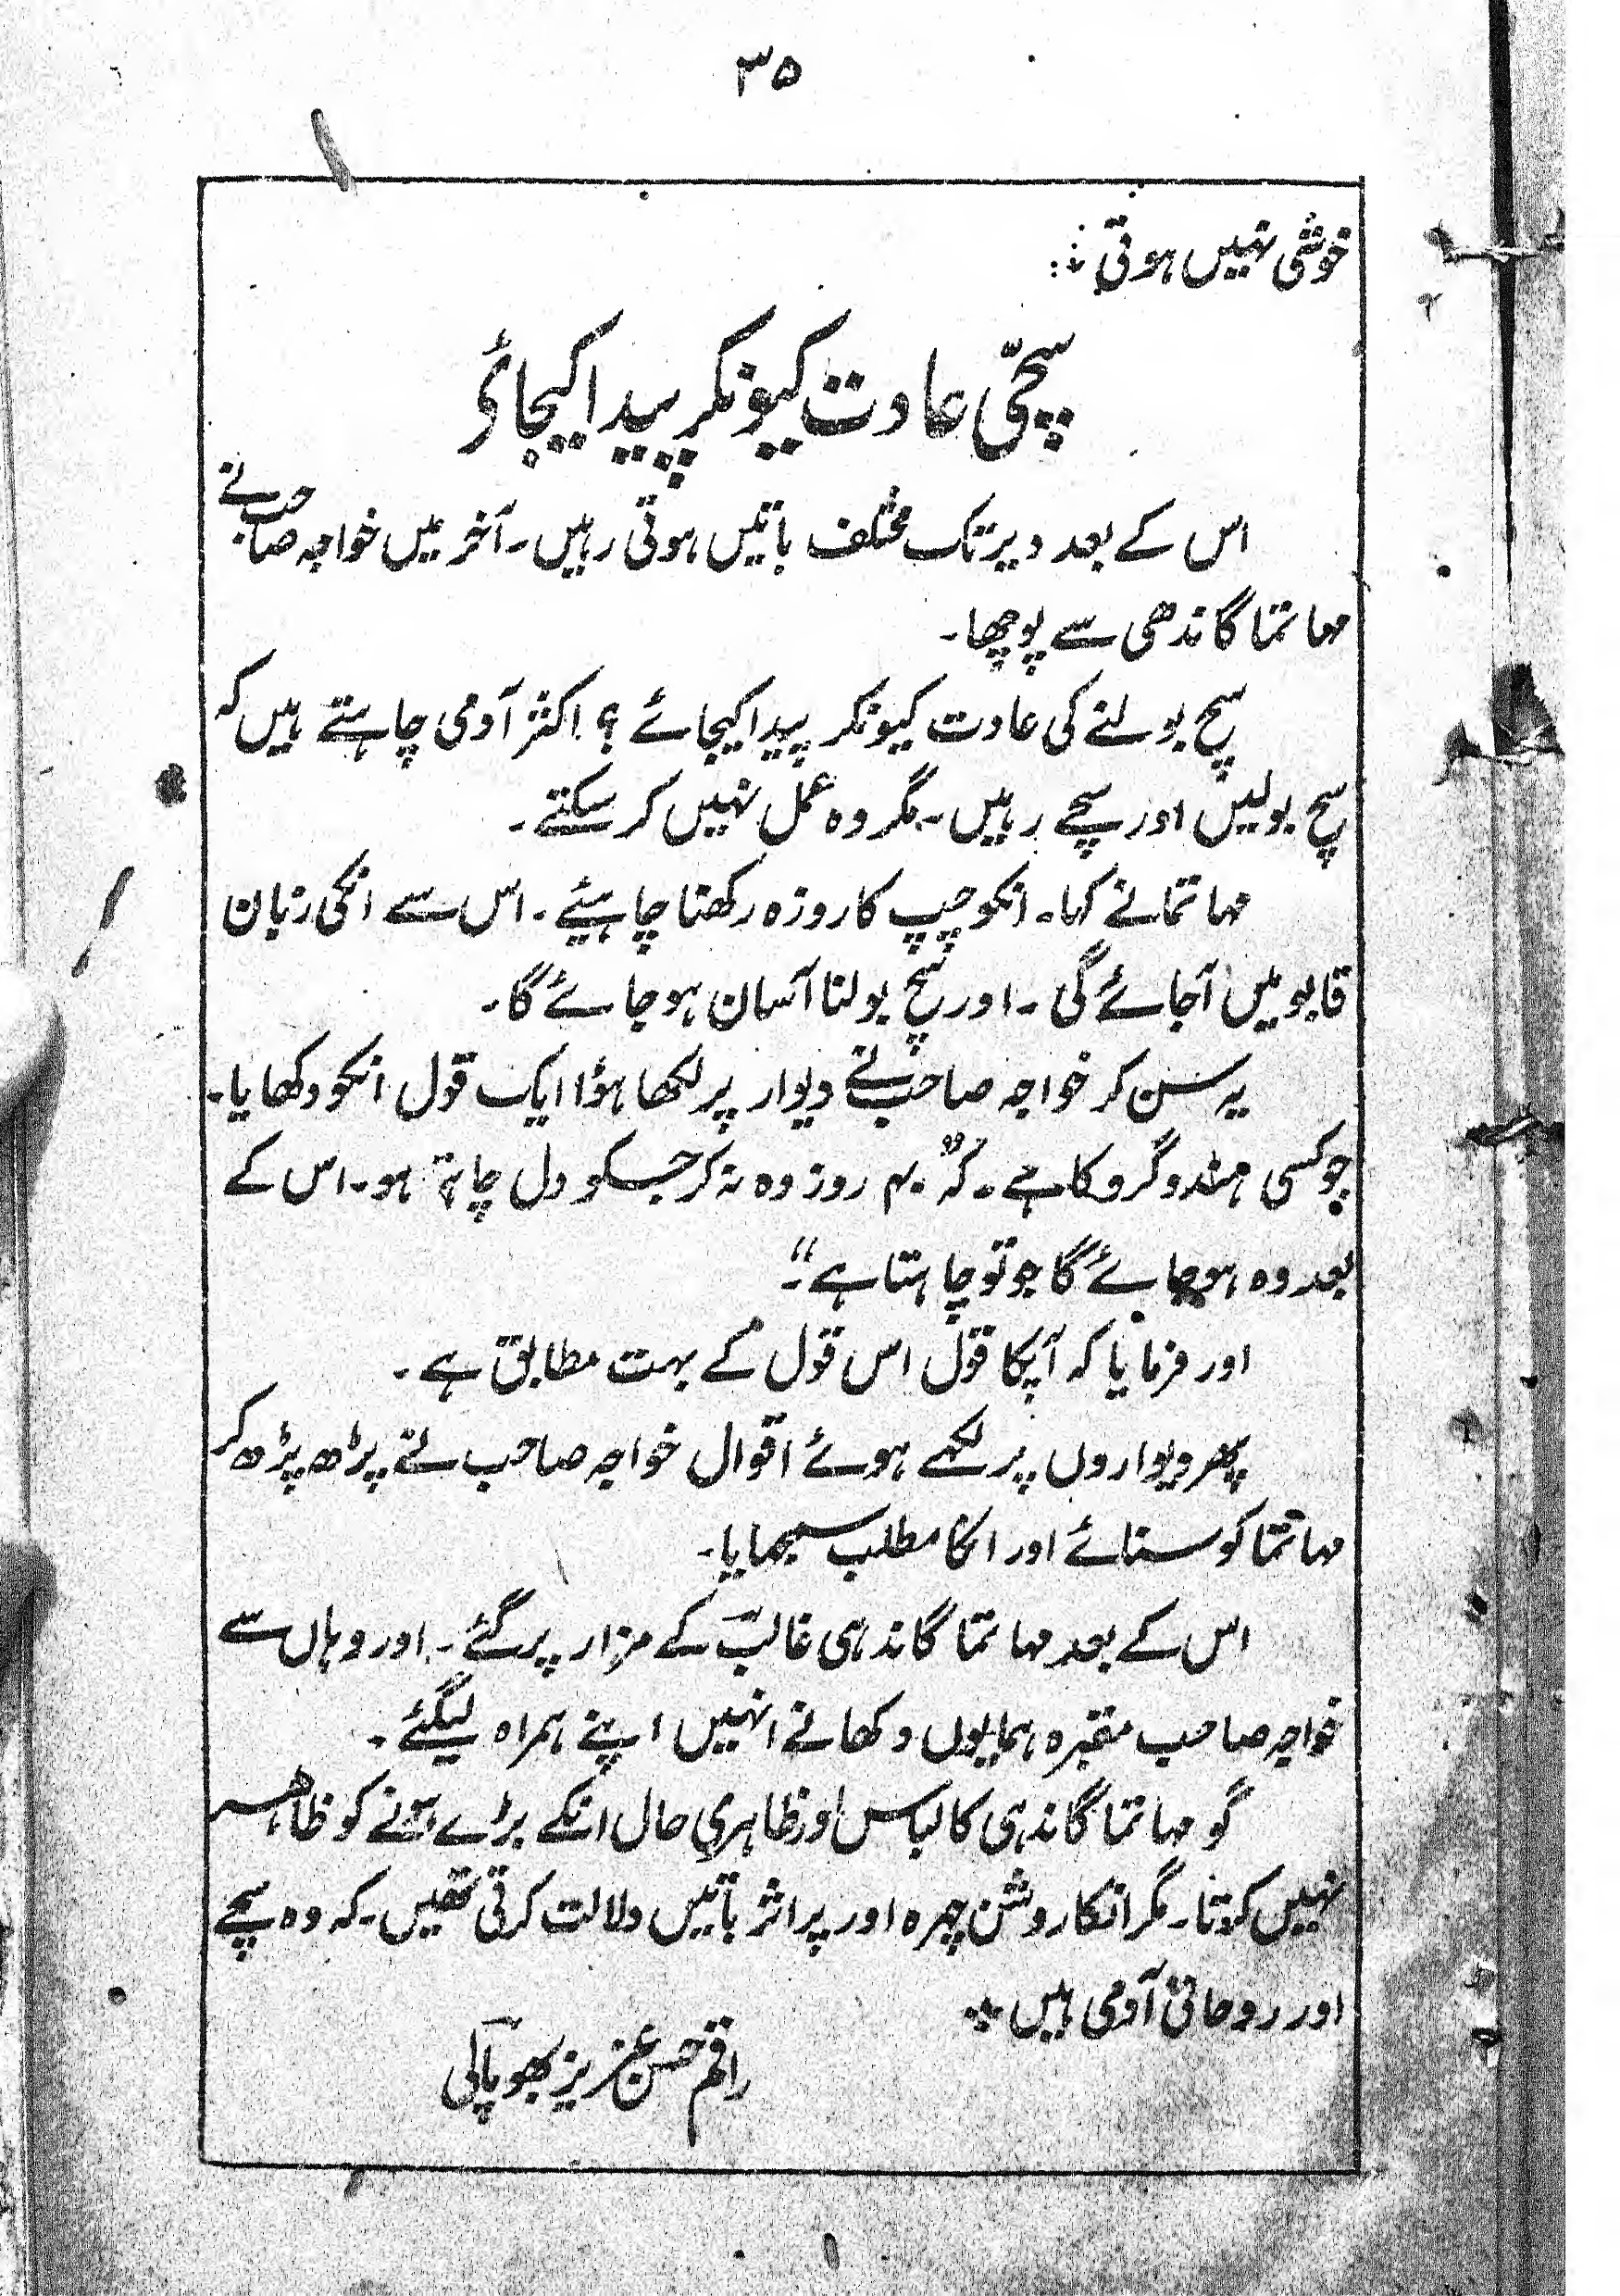 ۳۵
خوشی نہیں ہوتی ؞
سچّی عادت کیونکر پیدا کیجائے
اس کے بعد دیر تک مختلف باتیں ہوتی رہیں۔ آخر میں خواجہ صاحب نے
مہاتما گاندھی سے پوچھا۔
سچ بولنے کی عادت کیونکر پیدا کیجائے ؟ اکثر آدمی چاہتے ہیں کہ
سچ بولیں اور سچے رہیں۔ مگر وہ عمل نہیں کر سکتے۔
مہاتما نے کہا۔ انکو چپ کا روزہ رکھنا چاہیئے۔ اس سے انکی زبان
قابو میں آجائے گی۔ اور سچ بولنا آسان ہو جائے گا۔
یہ سن کر خواجہ صاحب نے دیوار پر لکھا ہوٴا ایک قول انکو دکھایا۔
جو کسی ہندو گرو کا ہے۔ کہ "۴۰ روز وہ نہ کر جسکو دل چاہتا ہو۔ اس کے
بعد وہ ہو جائے گا جو تو چاہتا ہے"۔
اور فرمایا کہ آپکا قول اس قول کے بہت مطابق ہے۔
پھر دیواروں پر لکھے ہوئے اقوال خواجہ صاحب نے پڑھ پڑھ کر
مہاتما کو سنائے اور انکا مطلب سمجھایا۔
اس کے بعد مہاتما گاندہی غالبؔ کے مزار پر گئے۔ اور وہاں سے
خواجہ صاحب مقبرہ ہمایوں دکھانے انہیں اپنے ہمراہ لیگئے۔
گو مہاتما گاندہی کا لباس اور ظاہری حال انکے بڑے ہونے کو ظاہر
نہیں کرتا۔ مگر انکا روشن چہرہ اور پر اثر باتیں دلالت کرتی تھیں۔ کہ وہ سچے
اور روحانی آدمی ہیں ؞
راقم حسن عزیز بھوپالی